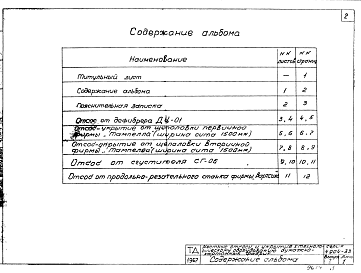 2
Содержание альбома
Наименование
№№ листов
№№ страниц
Титульный лист — 1
Содержание альбома 1 2
Пояснительная записка 2 3
Отсос от дефибрера ДЦ-01 3,4 4,5
Отсос-укрытие от щеполовки первичной
фирмы „Тампелла" (ширина сита 1500мм) 5,6 6,7
Отсос-укрытие от щеполовки вторичной
фирмы „Тампелла" (ширина сита 1500мм) 7,8 8,9
Отсос от сгустителя СГ-05 9,10 10,11
Отсос от продольно-резательного станка фирмы 11 12
ТД
1967
Содержание альбома
1